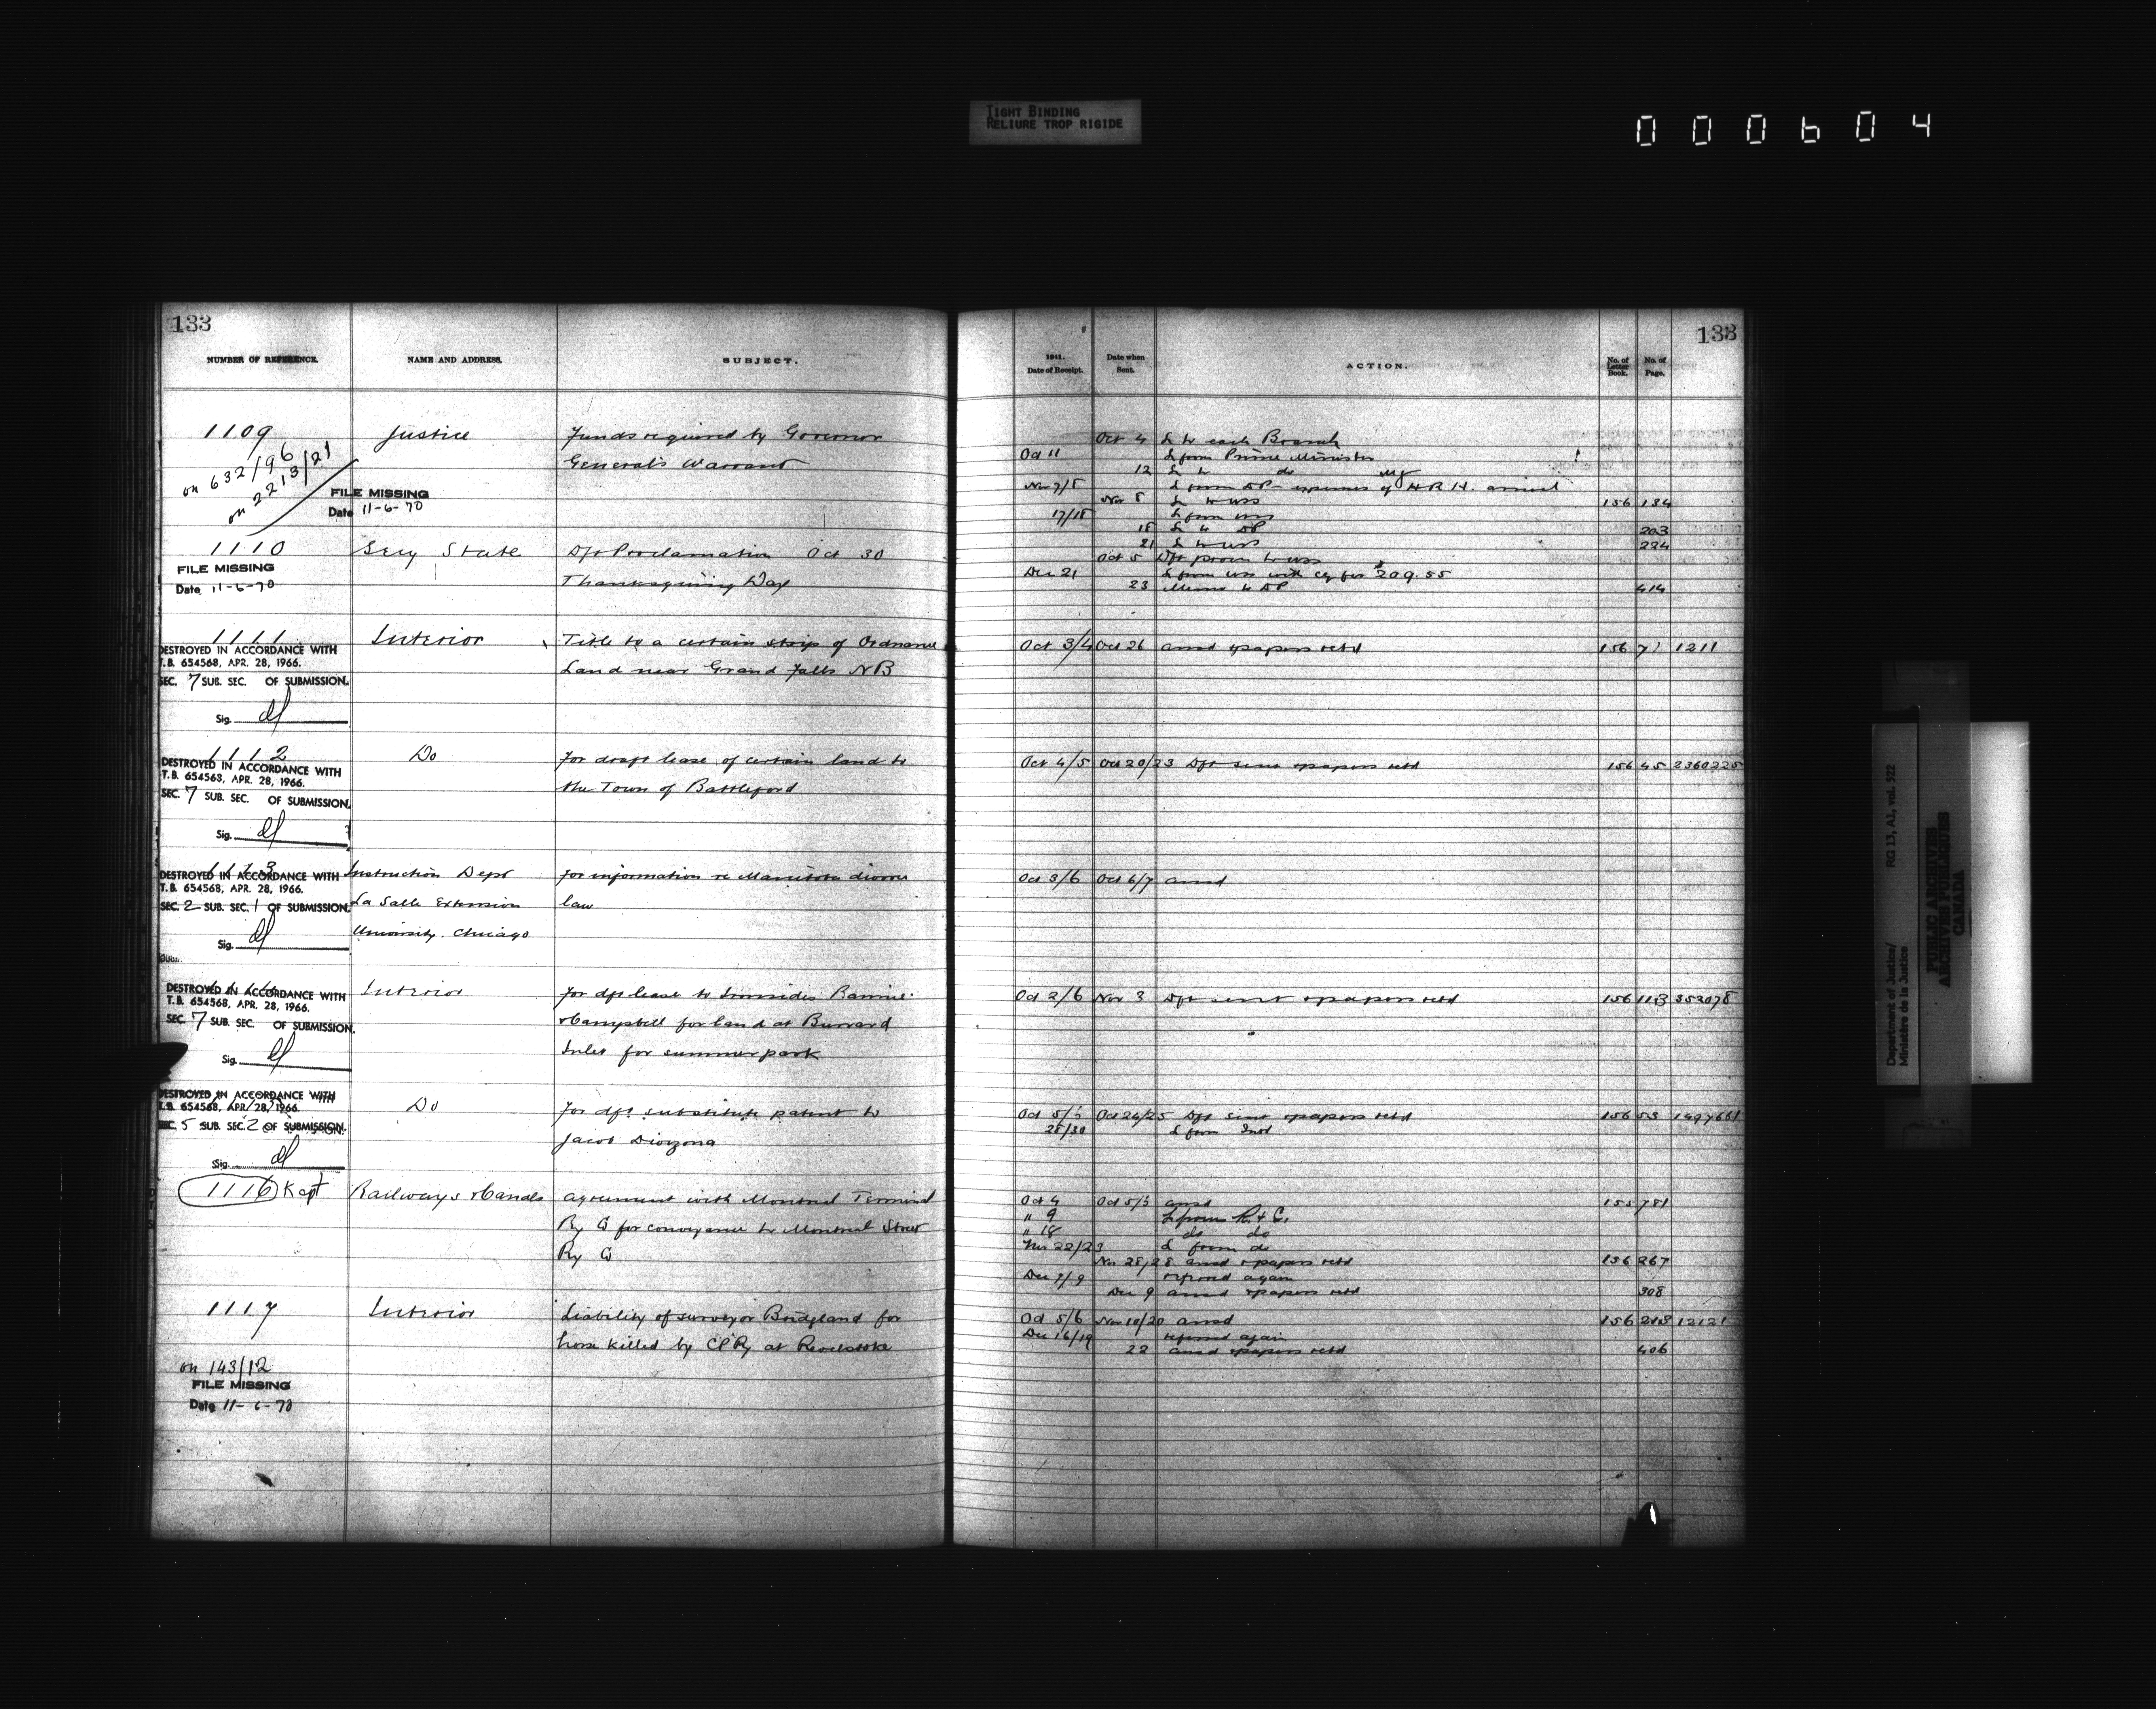 TIGHT BINDING
RELIURE TROP RIGIDE
000604
133
NUMBER OF REFERENCE.
NAME AND ADDRESS.
SUBJECT.
1109
Justice
Funds required by Governor
General's Warrant
on 632/96
on 2213/21
FILE MISSING
Date 11-6-70
1110
Secy State
Dft Proclamation Oct 30
Thanksgiving Day
FILE MISSING
Date 11-6-70
1111
Interior
Title to a certain strip of Ordnance
Land near Grand Falls NB
DESTROYED IN ACCORDANCE WITH
T.B. 654568, APR. 28, 1966.
SEC. 7 SUB. SEC. OF SUBMISSION.
Sig.
1112
Do
For draft lease of certain land to
the Town of Battleford
DESTROYED IN ACCORDANCE WITH
T.B. 654568, APR. 28, 1966.
SEC. 7 SUB. SEC. OF SUBMISSION.
Sig.
1113
Instruction Dept
La Salle Extension
University. Chicago
For information re Manitoba divorce
law
DESTROYED IN ACCORDANCE WITH
T.B. 654568, APR. 28, 1966.
SEC. 2 SUB. SEC. 1 OF SUBMISSION.
Sig.
Interior
For dft lease to Ironsides Rannie
& Campbell for land at Burrard
Inlet for summer park
DESTROYED IN ACCORDANCE WITH
T.B. 654568, APR. 28, 1966.
SEC. 7 SUB. SEC. OF SUBMISSION.
Sig.
Do
For dft substitute patent to
Jacob
DESTROYED IN ACCORDANCE WITH
T.B. 654568, APR. 28, 1966.
SEC. 5 SUB. SEC. 2 OF SUBMISSION.
Sig.
1116 Kept
Railways & Canals
Agreement with Montreal Terminal
Ry Co for conveyance to Montreal Street
Ry Co
1117
Interior
Liability of surveyor Bridgland for
horse killed by CPRy at Revelstoke
on 143/12
FILE MISSING
Date 11-6-70
133
1911.
Date of Receipt.
Date when
Sent.
ACTION.
No. of
Letter
Book.
No. of
Page.
Oct 4 L to each Branch
Oct 11 L from Prime Minister
12 L to do
Nov 7/8 L from DP - expenses of H.R.H. arrival
Nov 8 L to USS 156 134
17/18 L from USS
18 L to DP 203
21 L to USS 224
Oct 5 Dft procn to USS
Dec 21 L from USS with cq for $209.55
23 Memo to DP 414
Oct 3/4 Oct 26 ansd & papers retd 156 71 1211
Oct 4/5 Oct 20/23 Dft sent & papers retd 156 45 2360225
Oct 3/6 Oct 6/7 ansd
Oct 2/6 Nov 3 Dft sent & papers retd 156 113 353078
Oct 24/25 Dft sent & papers retd 156 53 1497661
28/30 L from Intr
Oct 4 ansd 155 781
" 9 L from R. & C.
" 18 do do
Nov 22/23 L from do
Nov 28/28 ansd & papers retd 156 267
Dec 7/9 referred again
Dec 9 ansd & papers retd 308
Oct 5/6 Nov 18/20 ansd 156 218 12121
Dec 16/19 referred again
22 ansd & papers retd 406
Department of Justice/
Ministère de la Justice
RG 13, A1, vol. 522
PUBLIC ARCHIVES
ARCHIVES PUBLIQUES
CANADA